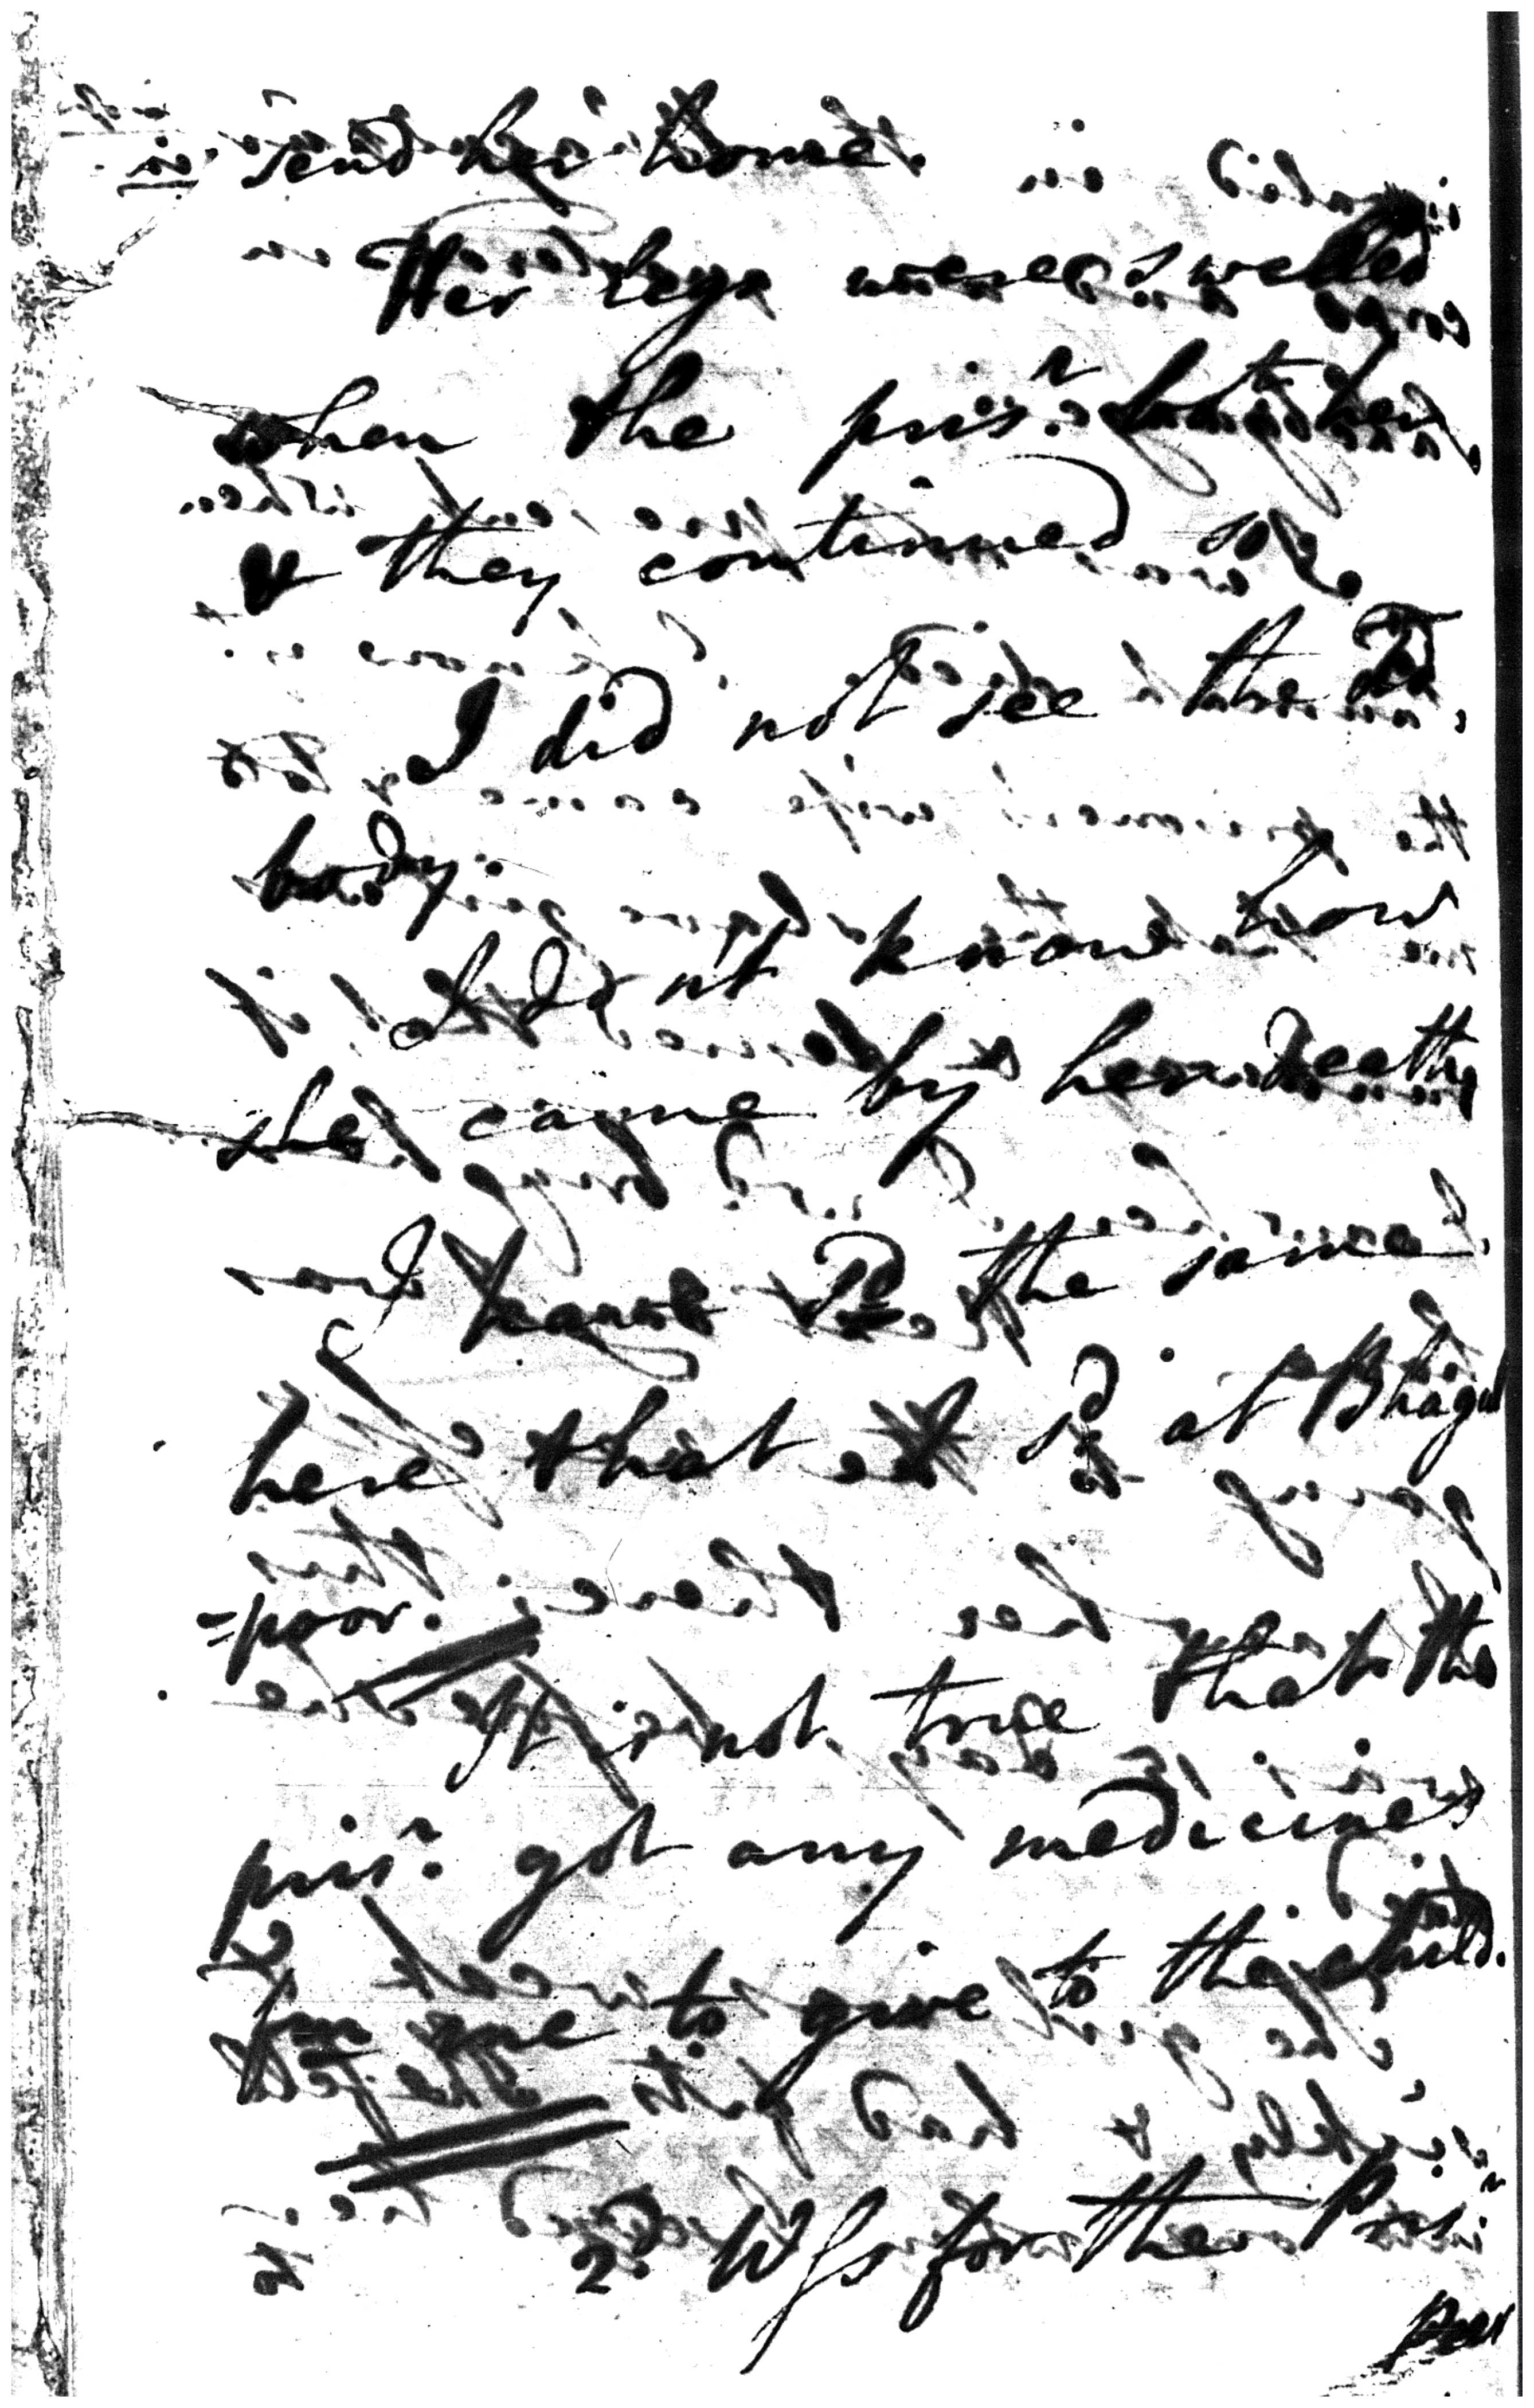 send her home.
Her legs were swelled
when the pris.r bo't her
& they continued so
I did not see the dd
body.
I do n't know how
she came by her death
I have sd the same
here that I sd at Bhagul
=poor.
It is not true that the
pris.r got any medicines
fm me to give to the child.
2d Wss for the Pris.r